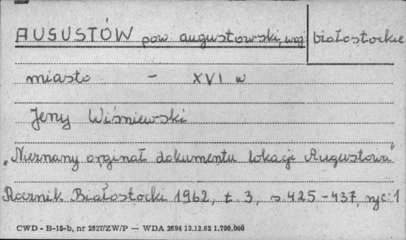 AUGUSTÓW pow augustowski, woj białostockie
miasto - XVI w
Jerzy Wiśniewski
„Nieznany orginał dokumentu lokacji Augustowa"
Rocznik Białostocki 1962, t. 3, s. 425-437, ryc. 1
CWD - H-15-b, nr 2827/ZW/P — WDA 2694 13.12.62 1.700.000